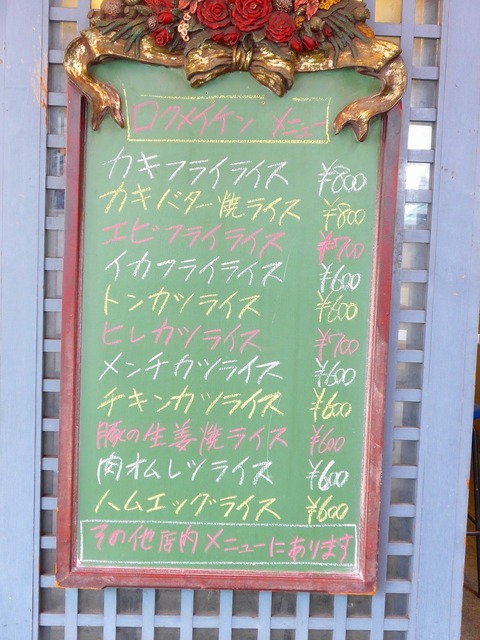 ロクメイケン メニュー
カキフライライス ¥800
カキバター焼ライス ¥800
エビフライライス ¥700
イカフライライス ¥600
トンカツライス ¥600
ヒレカツライス ¥700
メンチカツライス ¥600
チキンカツライス ¥600
豚の生姜焼ライス ¥600
肉オムレツライス ¥600
ハムエッグライス ¥600
その他店内メニューにあります